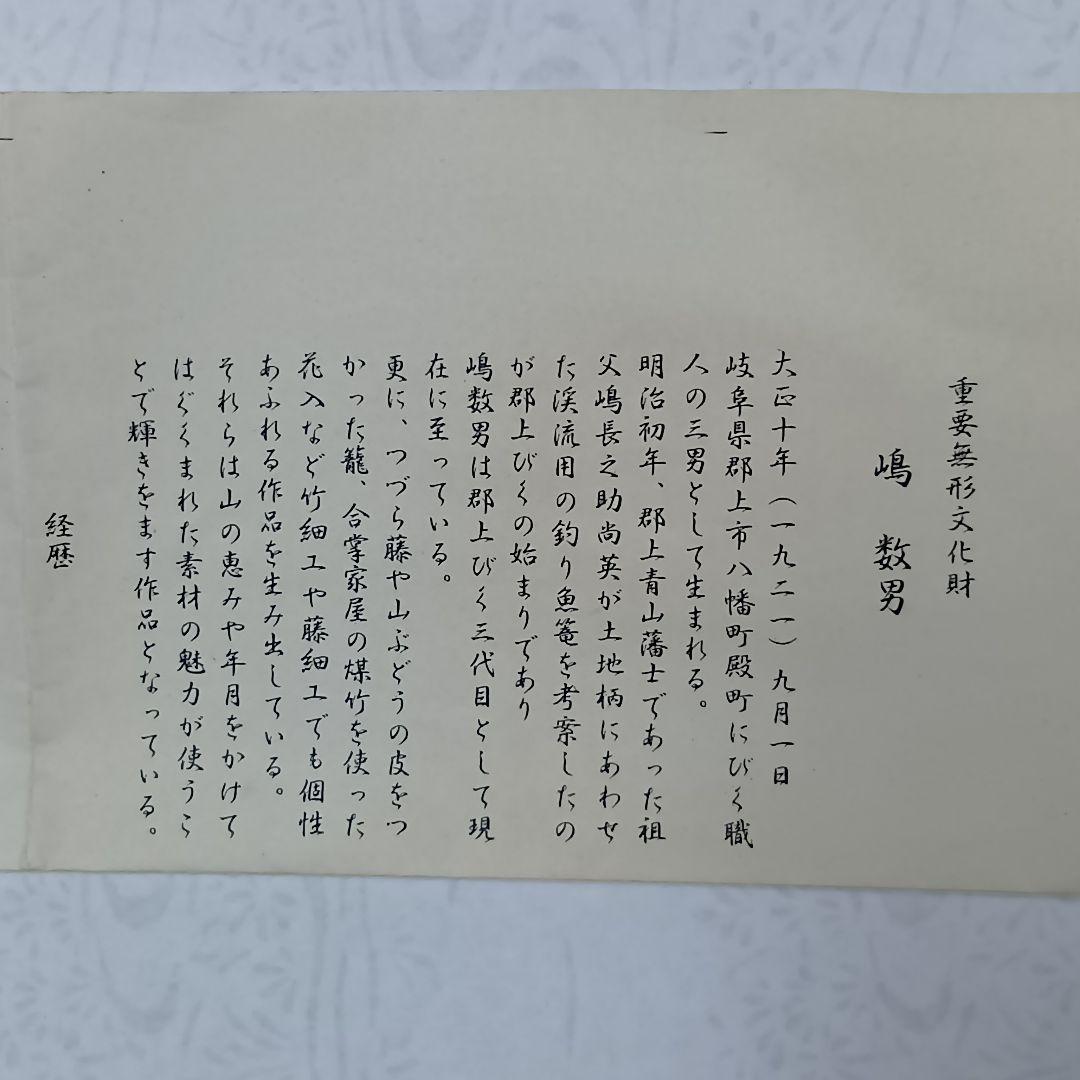 重要無形文化財
嶋 数男
大正十年(一九二一)九月一日
岐阜県郡上市八幡町殿町にびく職
人の三男として生まれる。
明治初年、郡上青山藩士であった祖
父嶋長之助尚英が土地柄にあわせ
た渓流用の釣り魚篭を考案したの
が郡上びくの始まりであり
嶋数男は郡上びく三代目として現
在に至っている。
更に、つづら藤や山ぶどうの皮をつ
かった籠、合掌家屋の煤竹を使った
花入など竹細工や藤細工でも個性
あふれる作品を生み出している。
それらは山の恵みや年月をかけて
はぐくまれた素材の魅力が使うこ
とで輝きをます作品となっている。
経歴